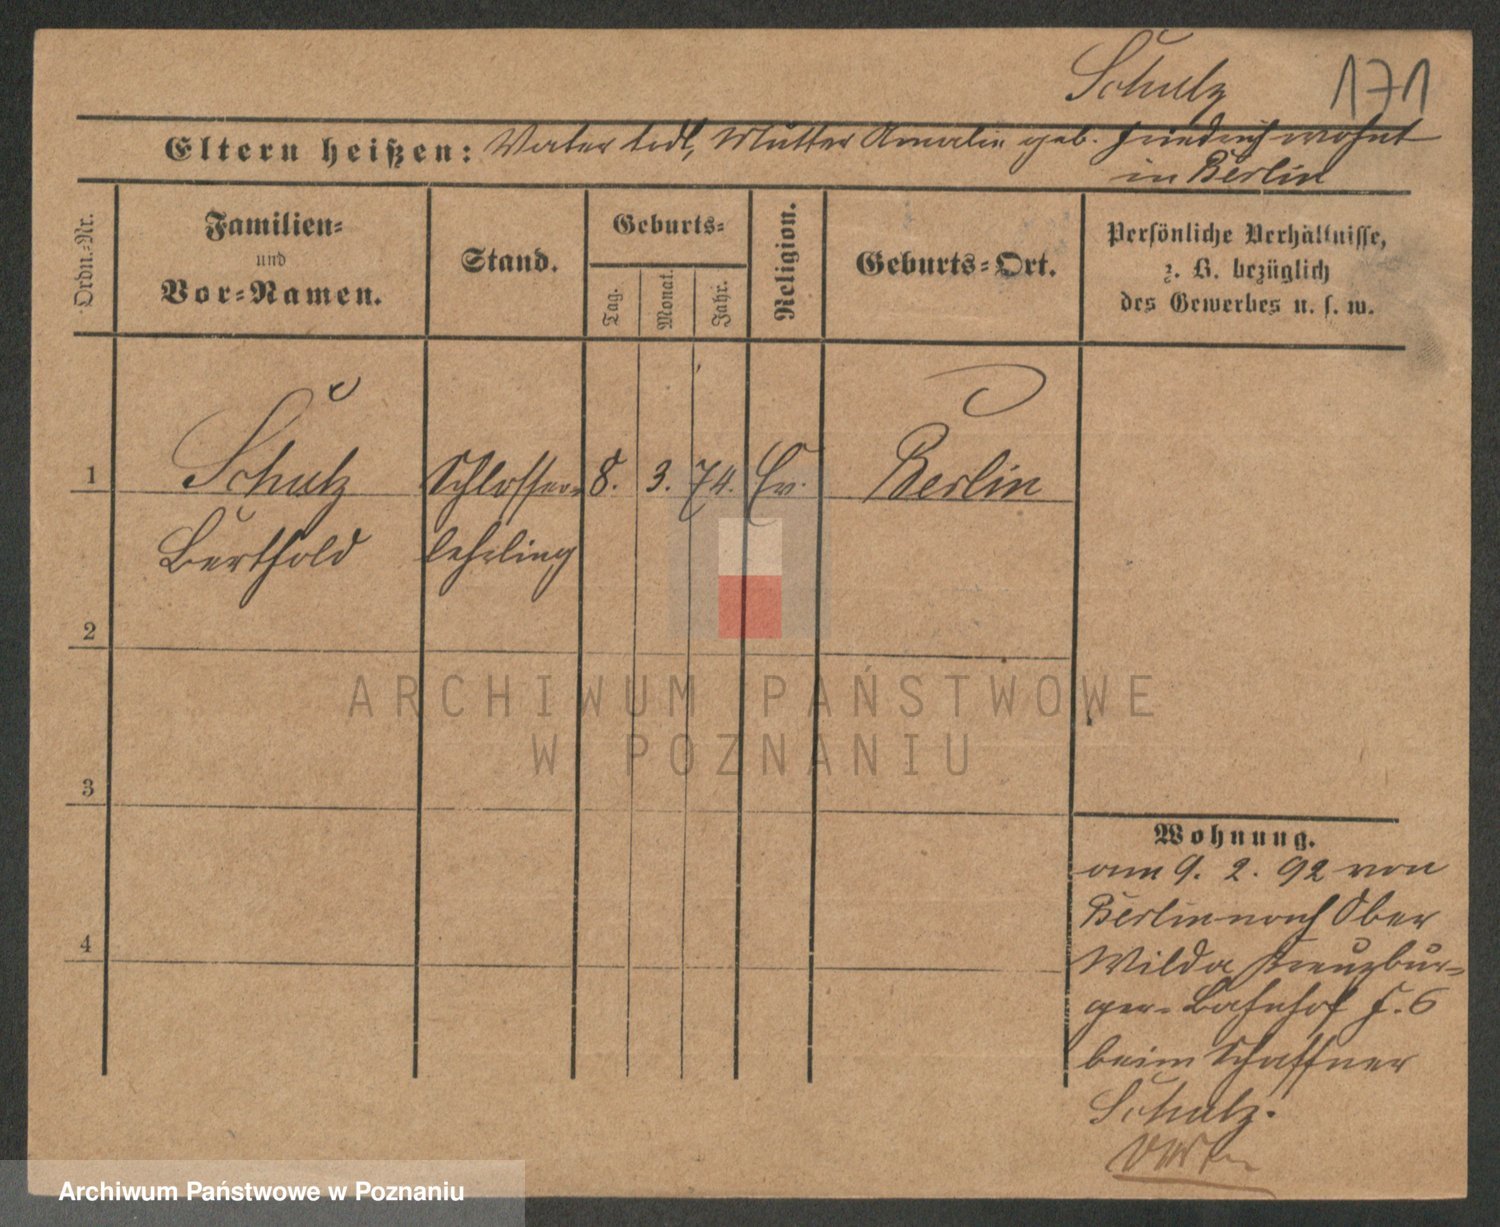 Schulz 171
Eltern heißen: Vater todt, Mutter Amalie geb. Friedrich wohnt
in Berlin
Ordn.-Nr.
Familien-
und
Vor-Namen.
Stand.
Geburts-
Tag.
Monat.
Jahr.
Religion.
Geburts-Ort.
Persönliche Verhältnisse,
z. B. bezüglich
des Gewerbes u. s. w.
1 Schulz Schlosser- 8. 3. 74. Ev. Berlin
Berthold lehrling
2
3
4
Wohnung.
am 9. 2. 92 von
Berlin nach Ober
Wilda Kreuzbur-
ger-Bahnhof F. 6
beim Schaffner
Schulz.
ARCHIWUM PAŃSTWOWE
W POZNANIU
Archiwum Państwowe w Poznaniu